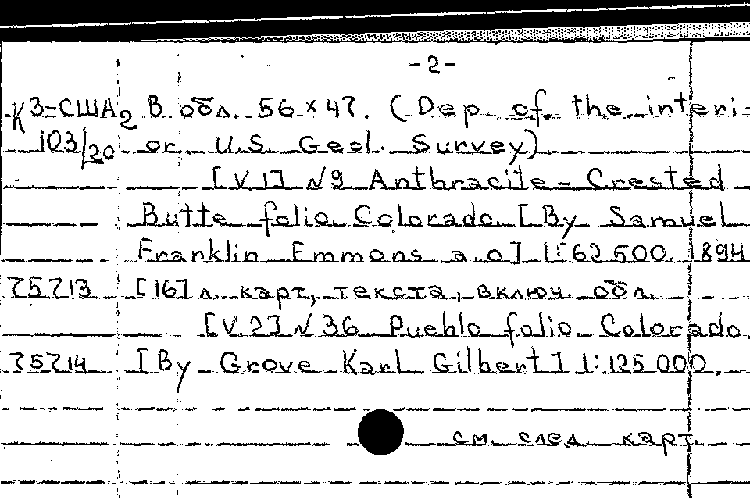 -2-
К3-США2 В обл. 56×47. (Dep. of the interi-
103/20 or U.S. Geol. Survey)
[V 1] №9 Anthracite - Crested
Butte folio Colorado [By Samuel
Franklin Emmons a.o] 1:62 500. 1894
75713 [16] л. карт, текста, включ. обл.
[V 2] №36 Pueblo folio Colorado
75714 [By Grove Karl Gilbert] 1:125 000.
см. след. карт.